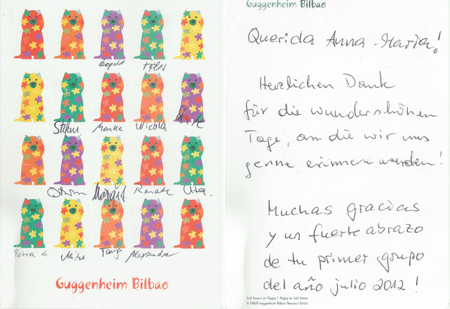 Stefan
Marike
Nicola
Renate
Uta
Petra
Tanja
Alexandra
Guggenheim Bilbao
Guggenheim Bilbao
Querida Anna-Maria!
Herzlichen Dank
für die wunderschönen
Tage, an die wir uns
gerne erinnern werden!
Muchas gracias
y un fuerte abrazo
de tu primer grupo
del año julio 2012!